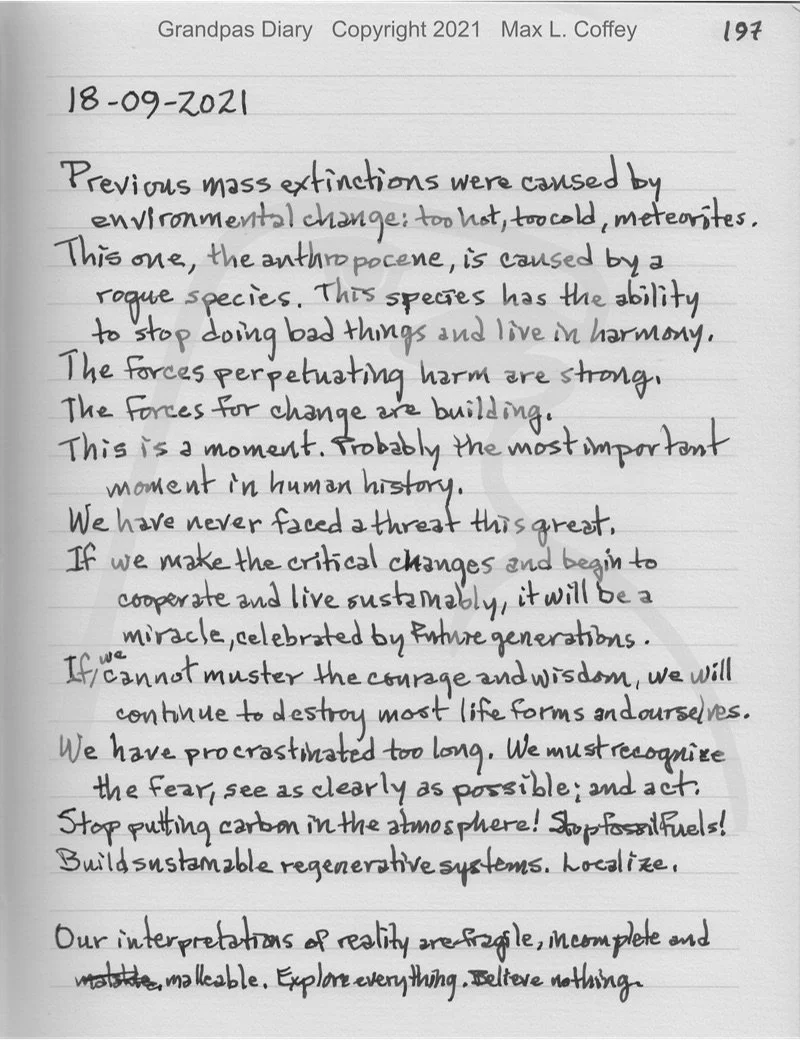 Grandpas Diary Copyright 2021 Max L. Coffey 197
18-09-2021
Previous mass extinctions were caused by
environmental change: too hot, too cold, meteorites.
This one, the anthropocene, is caused by a
rogue species. This species has the ability
to stop doing bad things and live in harmony.
The forces perpetuating harm are strong.
The forces for change are building.
This is a moment. Probably the most important
moment in human history.
We have never faced a threat this great.
If we make the critical changes and begin to
cooperate and live sustainably, it will be a
miracle, celebrated by future generations.
If we cannot muster the courage and wisdom, we will
continue to destroy most life forms and ourselves.
We have procrastinated too long. We must recognize
the fear, see as clearly as possible; and act.
Stop putting carbon in the atmosphere! Stop fossil fuels!
Build sustainable regenerative systems. Localize.
Our interpretations of reality are fragile, incomplete and
malleable. Explore everything. Believe nothing.